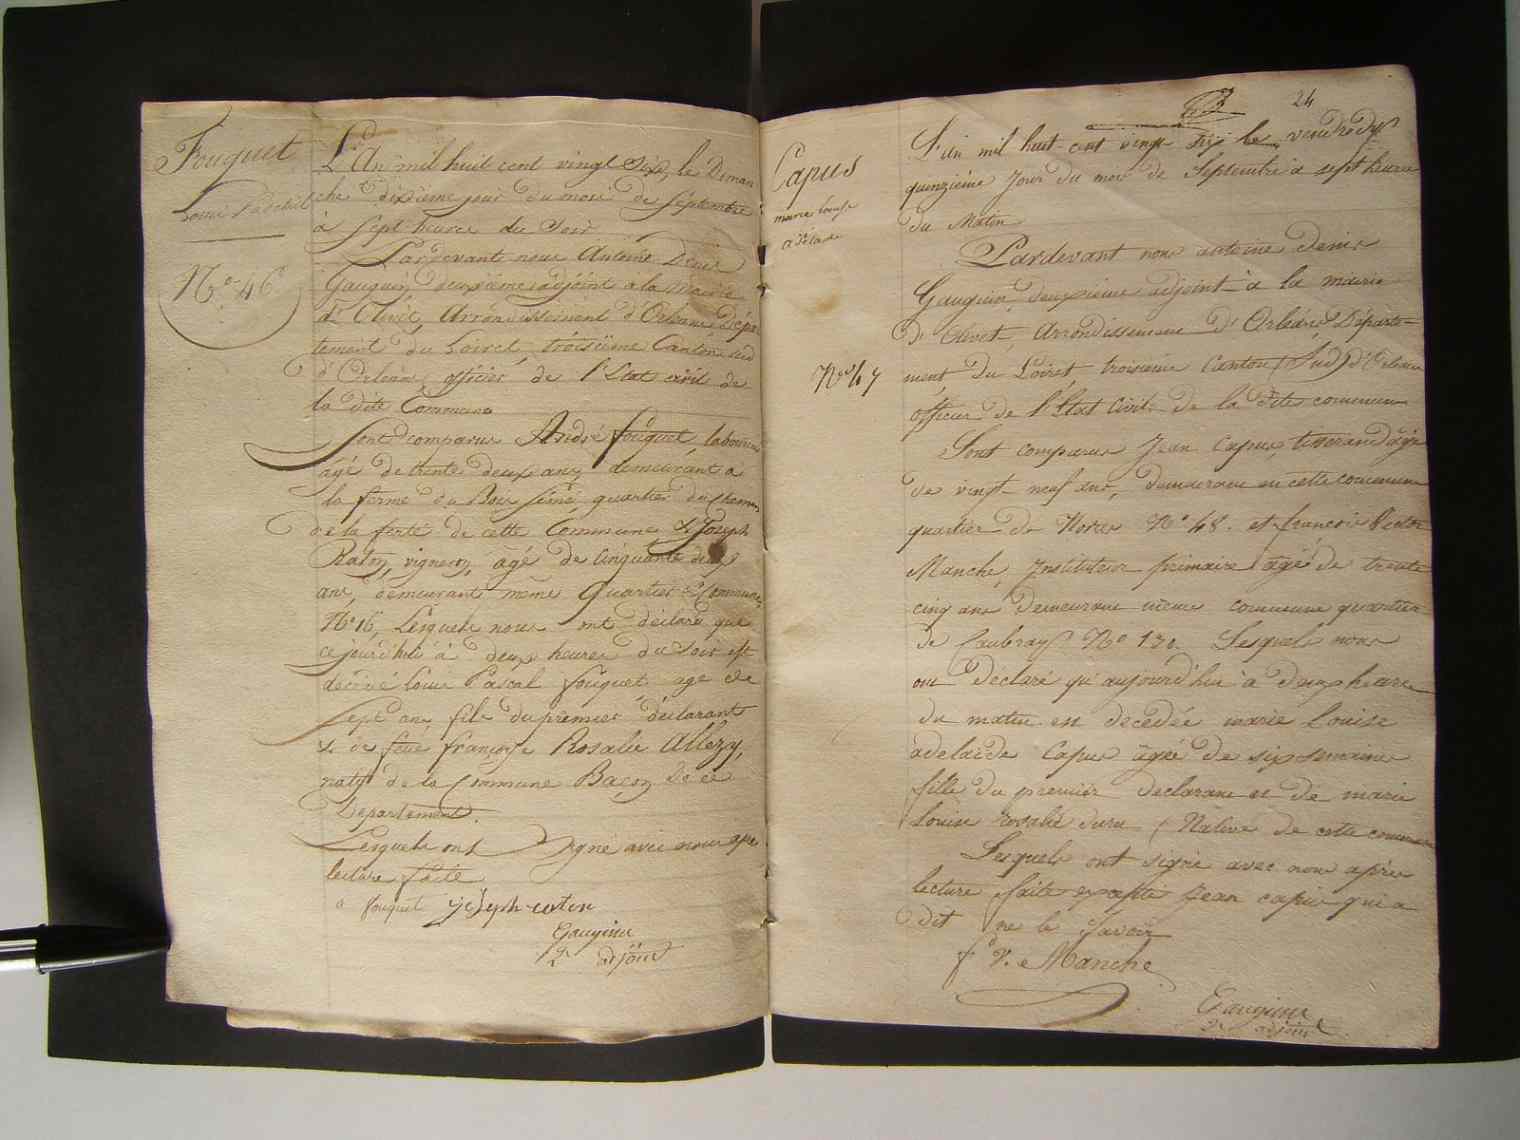 Fouquet
Louis Pascal
N.º 46
L'An mil huit cent vingt Six, le Diman
che dixième jour du mois de Septembre
à Sept heures du Soir
Pardevant nous Antoine Denis
Gauguin deuxième adjoint à la Mairie
d'Olivet, Arrondissement d'Orléans Dépar
tement du Loiret, troisième Canton sud
d'Orléans, officier de l'Etat civil de
la dite Commune
Sont comparus André fouquet, laboureur
agé de trente deux ans demeurant à
la ferme du Bois quartier du chemin
de la ferté de cette Commune & Joseph
vigneron, agé de Cinquante deux
ans, demeurant même Quartier & Commune
Nº 16, Lesquels nous ont déclaré que
ce jourd'hui à deux heures du soir est
décédé Louis Pascal fouquet agé de
Sept ans fils du premier déclarant
& de feue françoise Rosalie Allezy,
natif de la Commune Bacon de ce
Département.
Lesquels ont Signé avec nous après
lecture faite
a fouquet Joseph
Gauguin
2e adjoint
24
Capus
marie louise
adélaide
Nº 47
L'an mil huit cent vingt six le vendredy
quinzième Jour du mois de Septembre à sept heures
du Matin
Pardevant nous antoine denis
Gauguin, deuxième adjoint à la mairie
d'Olivet, Arrondissement d'Orléans Départe-
ment du Loiret troisième Canton (Sud) d'Orleans
officier de l'Etat Civil de la dite commune
Sont comparus Jean Capus, tisserand âgé
de vingt neuf ans, demeurant en cette commune
quartier de Nº 48. et françois
Manche, Instituteur primaire âgé de trente
cinq ans demeurant même commune quartier
de Caubray Nº 130. Lesquels nous
ont déclaré qu'aujourd'hui à deux heures
du matin est décédée marie Louise
adelaïde Capus âgée de six semaines
fille du premier déclarant et de marie
Louise rosalie duru (Native de cette commune
Lesquels ont signé avec nous après
lecture faite excepté Jean capus qui a
dit ne le Savoir
f. V. Manche
Gauguin
2e adjoint